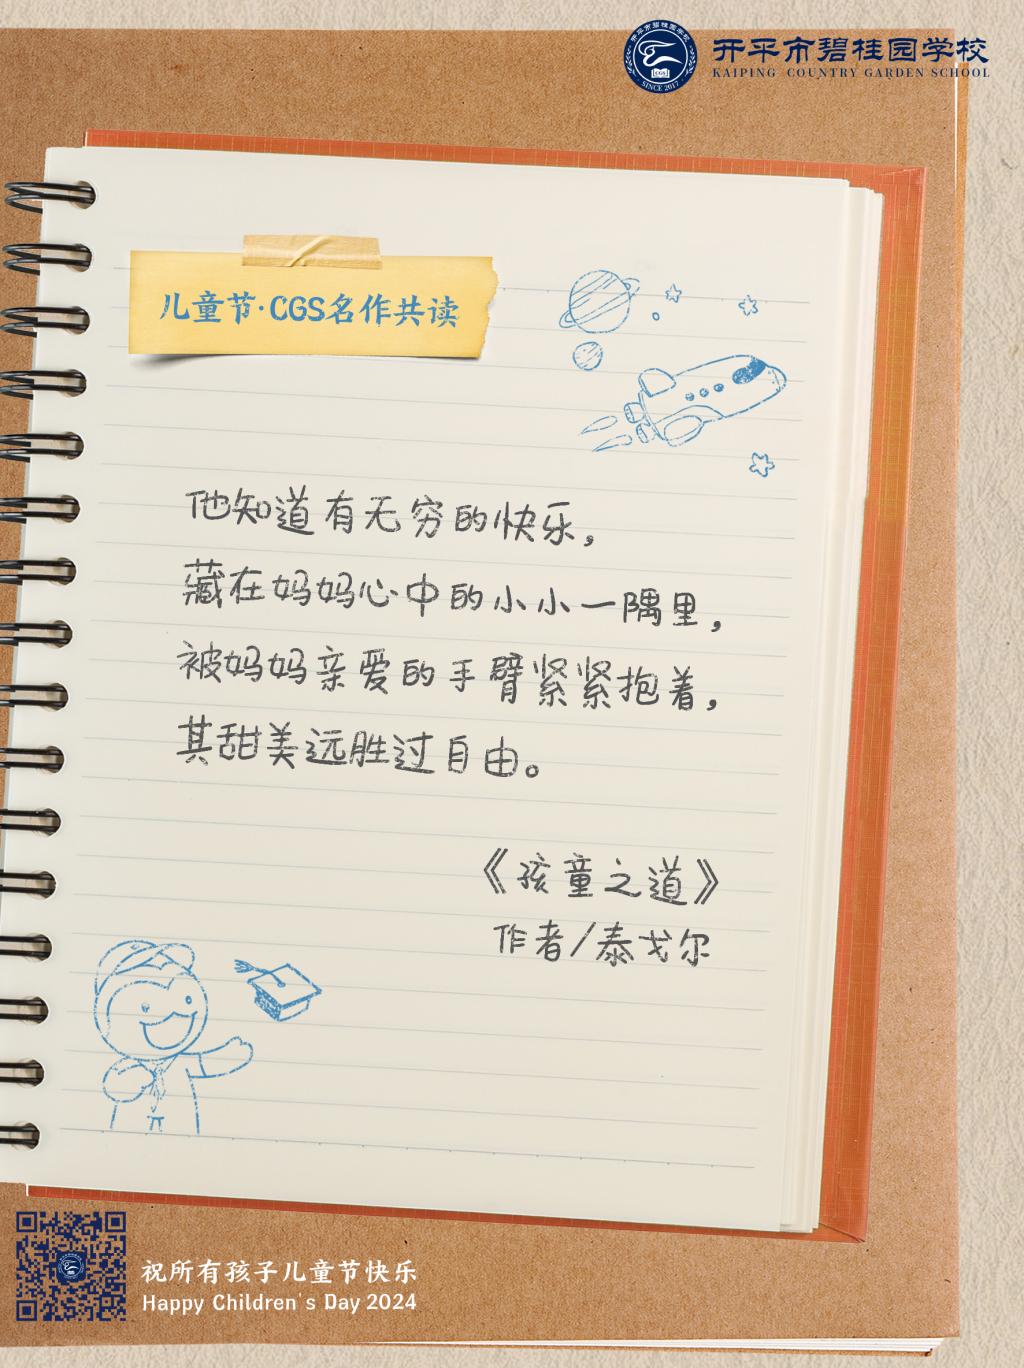 开平市碧桂园学校
KAIPING COUNTRY GARDEN SCHOOL
开平市碧桂园学校
CGS
SINCE 2017
儿童节·CGS名作共读
他知道有无穷的快乐，
藏在妈妈心中的小小一隅里，
被妈妈亲爱的手臂紧紧抱着，
其甜美远胜过自由。
《孩童之道》
作者/泰戈尔
祝所有孩子儿童节快乐
Happy Children's Day 2024